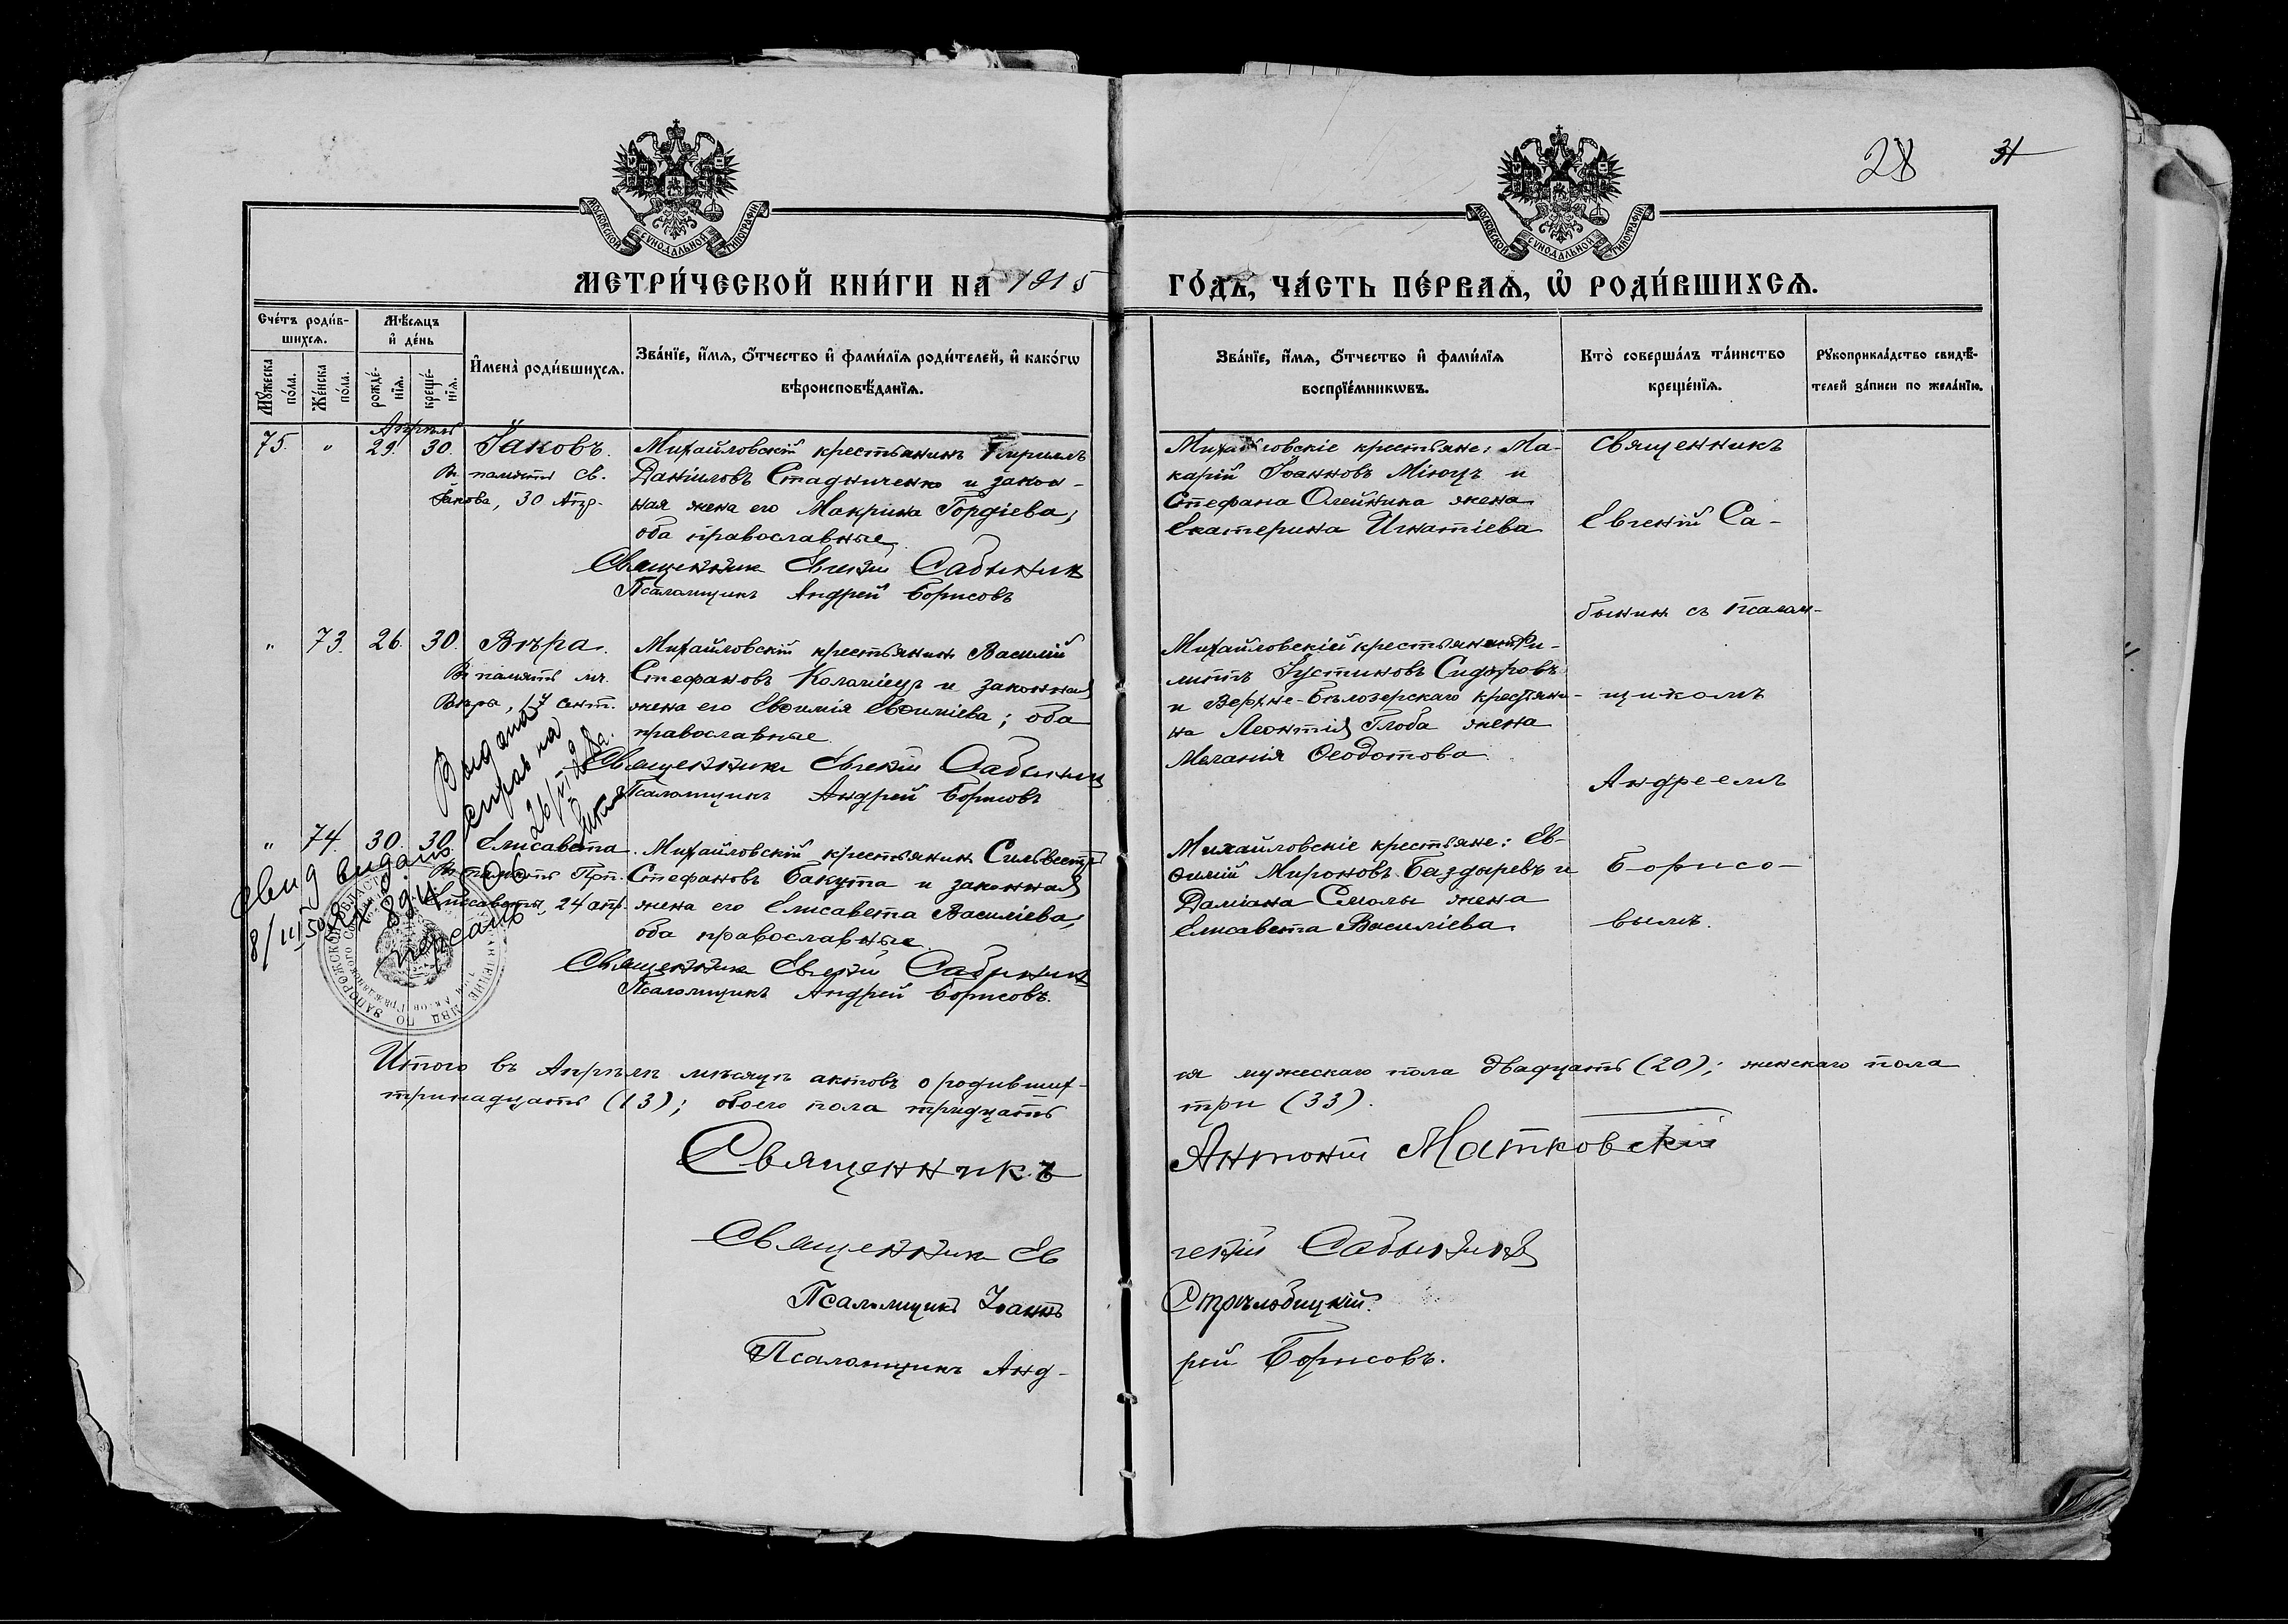 28 31
МОСКОВСКОЙ СѴНОДАЛЬНОЙ ТИПОГРАФІИ
МОСКОВСКОЙ СѴНОДАЛЬНОЙ ТИПОГРАФІИ
МЕТРИ́ЧЕСКОЙ КНИ́ГИ НА 1915
ГО́ДЪ, ЧА́СТЬ ПЕ́РВАѦ, Ѡ҆ РОДИ́ВШИХСѦ.
Сче́тъ роди́в-
шихсѧ.
Мꙋжеска по́ла.
Же́нска по́ла.
Мѣ́сѧцъ
и҆ де́нь
рожде́-
нїѧ.
креще́-
нїѧ.
И҆мена̀ роди́вшихсѧ.
Зва́нїе, и҆́мѧ, ѻ҆́тчество и҆ фами́лїѧ роди́телей, и҆ како́гѡ
вѣроисповѣ́данїѧ.
Зва́нїе, и҆́мѧ, ѻ҆́тчество и҆ фами́лїѧ
воспрїе́мникѡвъ.
Кто̀ соверша́лъ та́инство
креще́нїѧ.
Рꙋкоприкла́дство свидѣ́-
телей за́писи по жела́нїю.
Апрѣль
75. " 29. 30. Іаковъ.
Въ память св.
Іакова, 30 Апр.
Михайловскій крестьянинъ Кириллъ
Даніиловъ Стадниченко и закон-
ная жена его Макрина Гордіева,
оба православные.
Священник Евгеній Сабынинъ
Псаломщикъ Андрей Борисовъ
Михайловскіе крестьяне: Ма-
карій Іоанновъ Міюцъ и
Стефана Олейника жена
Екатерина Игнатіева
Священникъ
Евгеній Са-
бынин съ псалом-
щикомъ
Андреемъ
Борисо-
вымъ.
" 73. 26. 30. Вѣра.
Въ память мч.
Вѣры, 17 сент.
Михайловскій крестьянин Василій
Стефановъ Коломіецъ и законная
жена его Евѳимія Евѳиміева; оба
православные
Священник Евгеній Сабынинъ
Псаломщикъ Андрей Борисовъ
Лустиновъ Сидоровъ
и Верхне-Бѣлозерскаго крестьяни-
на Леонтія Глоба жена
Меланія Ѳеодотова
Выдана
справка
" 74. 30. 30. Елисавета.
Въ память Прп.
Елисаветы, 24 апр.
Михайловскій крестьянин Сильвестръ
Стефановъ Бакута и законная
жена его Елисавета Василіева,
оба православные.
Священник Евгеній Сабынинъ
Псаломщикъ Андрей Борисовъ.
Михайловскіе крестьяне: Ев-
ѳимій Мироновъ Баздыревъ и
Даміана Смолы жена
Елисавета Василіева.
Итого въ Апрѣлѣ мѣсяцѣ актовъ о родивших-
ся мужескаго пола двадцать (20); женскаго пола
тринадцать (13); обоего пола тридцать
три (33).
Священникъ Антоній Матковскій
Священник Ев
геній Сабынинъ
Псаломщикъ Іоаннъ Стрѣлобицкій.
Псаломщикъ Анд-
рей Борисовъ.